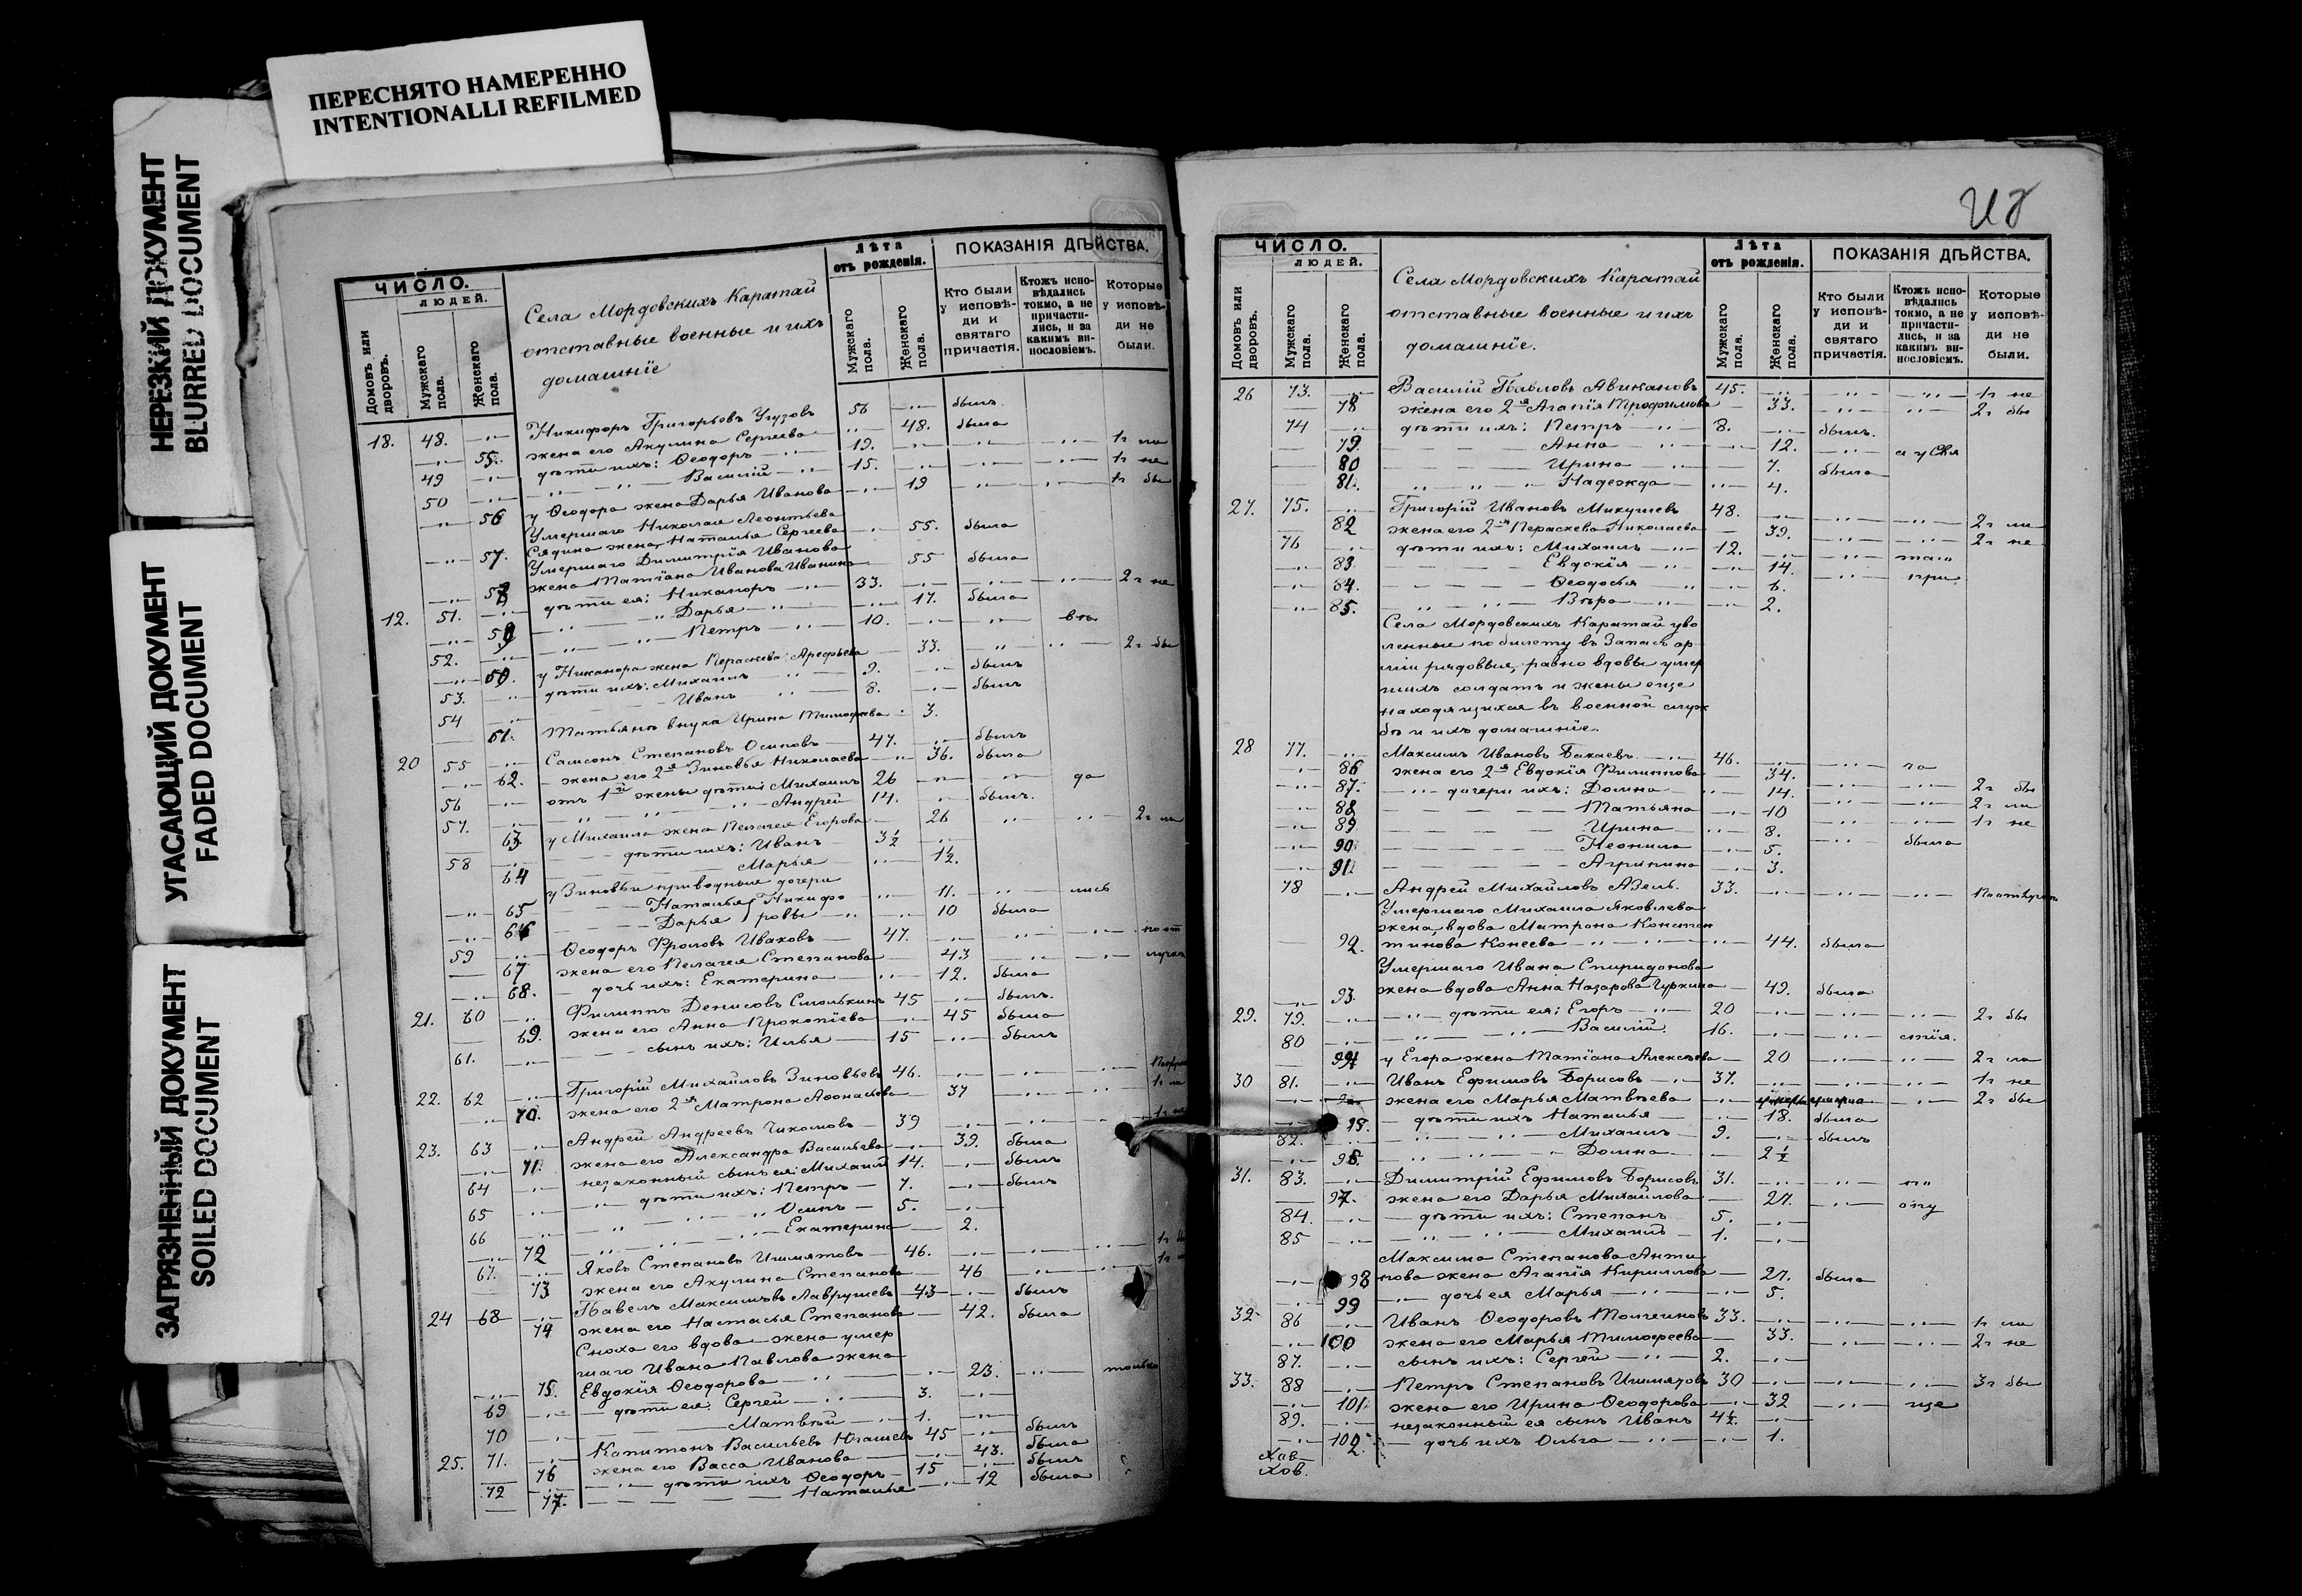 ПЕРЕСНЯТО НАМЕРЕННО
INTENTIONALLI REFILMED
НЕРЕЗКИЙ ДОКУМЕНТ
BLURRED DOCUMENT
УГАСАЮЩИЙ ДОКУМЕНТ
FADED DOCUMENT
ЗАГРЯЗНЕННЫЙ ДОКУМЕНТ
SOILED DOCUMENT
ЧИСЛО.
ЛЮДЕЙ.
Домовъ или дворовъ.
Мужскаго пола.
Женскаго пола.
Села Мордовскихъ Каратай
отставные военные и ихъ
домашніе
Лѣта
отъ рожденія.
Мужскаго пола.
Женскаго пола.
ПОКАЗАНІЯ ДѢЙСТВА.
Кто были у исповѣди и святаго причастія.
Ктожъ исповѣдались токмо, а не причастились, и за какимъ винословіемъ.
Которые у исповѣди не были.
18. 48. Никифоръ Григорьевъ Угузовъ 56 былъ
55. жена его Акулина Сергеева 48. была
49 дѣти ихъ: Ѳеодоръ 19.
50 Василій 15. 1г не
56 у Ѳеодора жена Дарья Иванова 19 1г бы
Умершаго Николая Леонтьева
57. Сядина жена Наталья Сергеева 55. была
Умершаго Димитрія Иванова
58 жена Матіана Иванова 55 была
12. 51. дѣти ея: Никаноръ 33. 2г не
59 Дарья 17. была
52. Петръ 10.
у Никанора жена Параскева Арефьева 33. 2г бы
53. дѣти ихъ: Михаилъ 9. былъ
54 Иванъ 8. былъ
61. Татьянъ внука Ирина Тимофеева 3.
20 55 Самсонъ Степановъ Осиповъ 47. былъ
62. жена его 2я Зиновья Николаева 36. была
56 отъ 1й жены дѣти: Михаилъ 26 да
57. Андрей 14. былъ.
63 у Михаила жена Пелагея Егорова 26
58 дѣти ихъ: Иванъ 3½
64 Марья 1½.
у Зиновьи приводныя дочери
65 Наталья Никифо 11. лись
66 Дарья ровы 10 была
59 Ѳеодоръ Фроловъ Иваковъ 47.
67 жена его Пелагея Степанова 43
68. дочь ихъ: Екатерина 12. была
21. 60 Филиппъ Денисовъ Смолькинъ 45 былъ.
69. жена его Анна Прокопіева 45 была
61. сынъ ихъ: Илья 15 былъ
22. 62 Григорій Михайловъ Зиновьевъ 46.
70. жена его 2я Матрона Аѳонасьева 37
23. 63 Андрей Андреевъ Чикомовъ 39
71. жена его Александра Васильева 39. была
64 незаконный сынъ ея: Михаилъ 14. былъ
65 дѣти ихъ: Петръ 7. былъ
66 Осипъ 5.
72 Екатерина 2.
67. Яковъ Степановъ Ишмятовъ 46.
73 жена его Акулина Степанова 46
24 68 Павелъ Максимовъ Лаврушевъ 43 былъ
74 жена его Настасья Степанова 42. была
Сноха его вдова жена умер
шаго Ивана Павлова жена
75. Евдокія Ѳеодорова 23. только
69 дѣти ея: Сергей 3.
70 Матвѣй 1.
25. 71. Капитонъ Васильевъ Югашевъ 45 былъ
76 жена его Васса Иванова 43. была
72 дѣти ихъ Ѳеодоръ 15 былъ
77. Наталья 12 была
ЧИСЛО.
ЛЮДЕЙ.
Домовъ или дворовъ.
Мужскаго пола.
Женскаго пола.
Села Мордовскихъ Каратай
отставные военные и ихъ
домашніе.
Лѣта
отъ рожденія.
Мужскаго пола.
Женскаго пола.
ПОКАЗАНІЯ ДѢЙСТВА.
Кто были у исповѣди и святаго причастія.
Ктожъ исповѣдались токмо, а не причастились, и за какимъ винословіемъ.
Которые у исповѣди не были.
26 73. Василій Павловъ Авикановъ 45. 1г не
78 жена его 2я Агапія Трофимова 33. 2г бы
74 дѣти ихъ: Петръ 8. былъ.
79. Анна 12.
80 Ирина 7. была
81. Надежда 4.
27. 75. Григорій Ивановъ Микушевъ 48. 2г ли
82 жена его 2я Параскева Николаева 39. 2г не
76 дѣти ихъ: Михаилъ 12.
83. Евдокія 14. при
84. Ѳеодосья 6.
85. Вѣра 2.
Села Мордовскихъ Каратай уво
ленные по билету въ Запасъ ар
міи рядовыя, равно вдовы умер
шихъ солдатъ и жены еще
находящихся въ военной служ
бѣ и ихъ домашніе.
28 77. Максимъ Ивановъ Бакаевъ 46.
86 жена его 2я Евдокія Филиппова 34.
87. дочери ихъ: Домна 14. 2г бы
88 Татьяна 10 2г ли
89 Ирина 8. 1г не
90 Неонила 5. была
91. Агрипина 3.
78 Андрей Михайловъ Азель. 33.
Умершаго Михаила Яковлева
жена, вдова Матрона Констан
92. тинова Конеева 44. была
Умершаго Ивана Спиридонова
93. жена вдова Анна Назарова Чуркина 49. была
29. 79. дѣти ея: Егоръ 20 2г бы
80 Василій. 16. стія.
94 у Егора жена Матіана Алексѣева 20 2г ли
30 81. Иванъ Ефимовъ Борисовъ 37. 1г не
жена его Марья Матвѣева умерла 2г бы
95. дѣти ихъ Наталья 18. была
82. Михаилъ 9. былъ
96. Домна 2½
31. 83. Димитрій Ефимовъ Борисовъ 31.
97. жена его Дарья Михайлова 27.
84. дѣти ихъ: Степанъ 5.
85 Михаилъ 1.
Максима Степанова Анти
98 пова жена Агапія Кириллова 27. была
99 дочь ея Марья 5.
32 86 Иванъ Ѳеодоровъ Толченовъ 33. 1г ли
100 жена его Марья Тимофеева 33. 2г не
87. сынъ ихъ: Сергей 2.
33. 88 Петръ Степановъ Ишмятовъ 30 3г бы
101. жена его Ирина Ѳеодорова 32 ще
89. незаконный ея сынъ Иванъ 4½.
102. дочь ихъ Ольга 1.